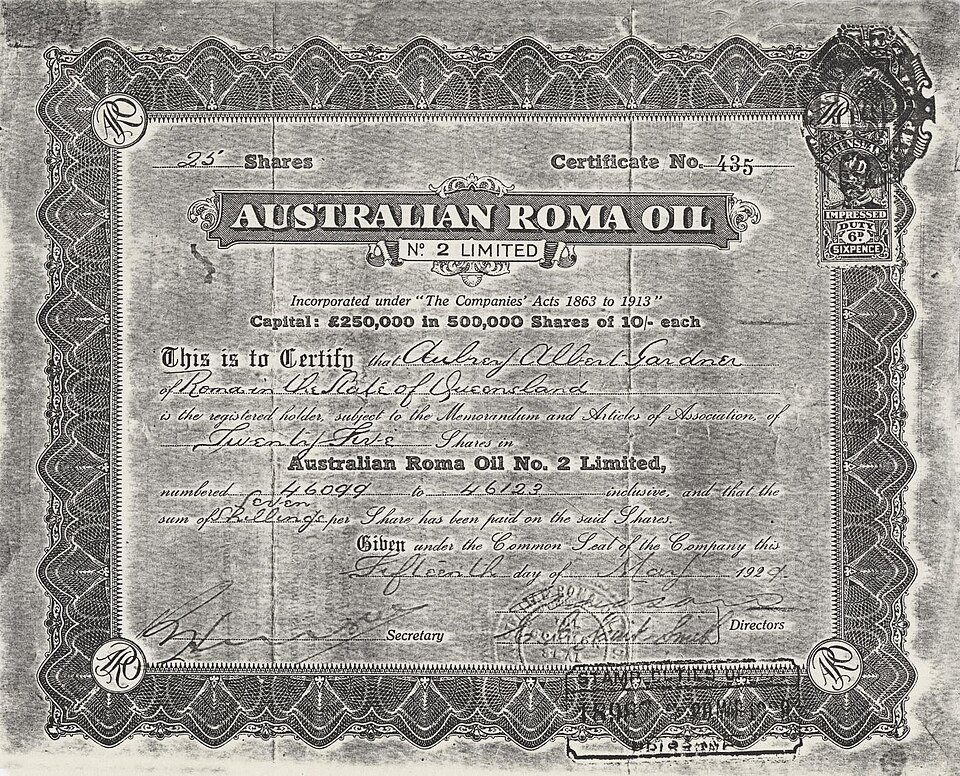 25 Shares Certificate No. 435
QUEENSLAND
IMPRESSED
DUTY
6D
SIXPENCE
AUSTRALIAN ROMA OIL
No. 2 LIMITED
Incorporated under "The Companies' Acts 1863 to 1913"
Capital: £250,000 in 500,000 Shares of 10/- each
This is to Certify that Aubrey Albert Gardner
of Roma in the State of Queensland
is the registered holder, subject to the Memorandum and Articles of Association, of
Twenty Five Shares in
Australian Roma Oil No. 2 Limited,
numbered 46099 to 46123 inclusive, and that the
Seven
sum of Shillings per Share has been paid on the said Shares.
Given under the Common Seal of the Company this
Fifteenth day of May 1929.
Secretary
Directors
STAMP DUTIES